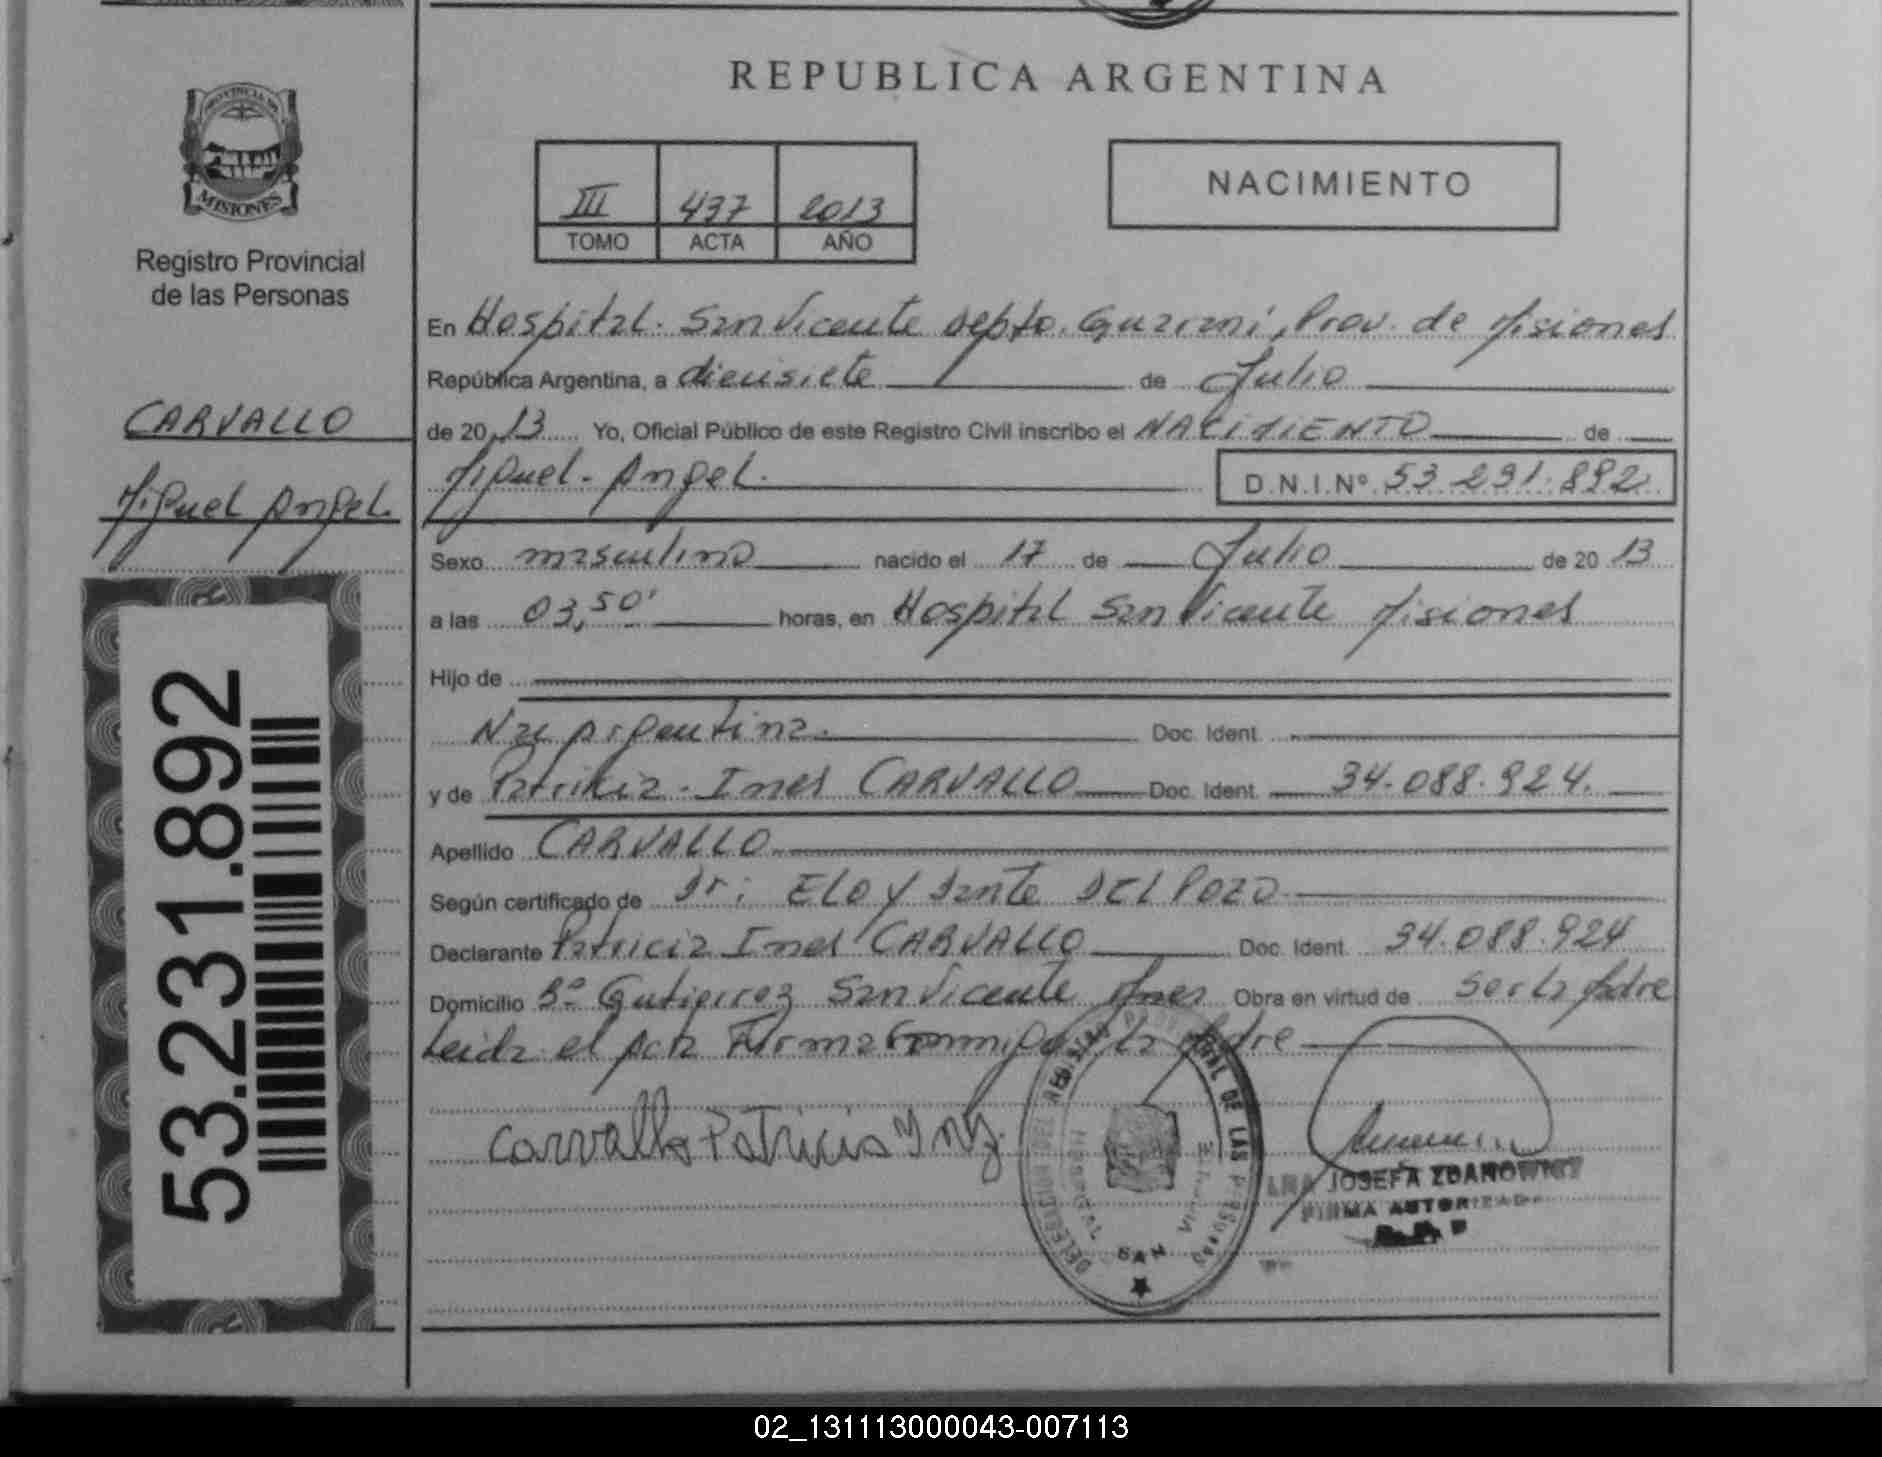 REPUBLICA ARGENTINA
PROVINCIA DE
MISIONES
Registro Provincial
de las Personas
III 437 2013
TOMO ACTA AÑO
NACIMIENTO
CARVALLO
Miguel Angel
53.231.892
En Hospital. San Vicente Depto. Guaraní, Prov. de Misiones
República Argentina, a diecisiete de Julio
de 2013 Yo, Oficial Público de este Registro Civil inscribo el NACIMIENTO de
Miguel - Angel. D.N.I.Nº 53 231.892
Sexo masculino nacido el 17 de Julio de 2013
a las 03,50' horas, en Hospital San Vicente Misiones
Hijo de
Nac Argentina. Doc. Ident.
y de Patricia - Ines CARVALLO Doc. Ident. 34.088.924.
Apellido CARVALLO
Según certificado de Dr: ELOY Dante DEL POZO
Declarante Patricia Ines CARVALLO Doc. Ident. 34.088.924
Domicilio Bº Gutierrez San Vicente Mnes Obra en virtud de Ser la Madre
Leida el Acta Firma Conmigo la Madre
Carvallo Patricia Ynez
REGISTRO PROVINCIAL DE LAS PERSONAS
DELEGACION
HOSPITAL SAN VICENTE
JOSEFA ZDANOWICZ
FIRMA AUTORIZADA
02_131113000043-007113